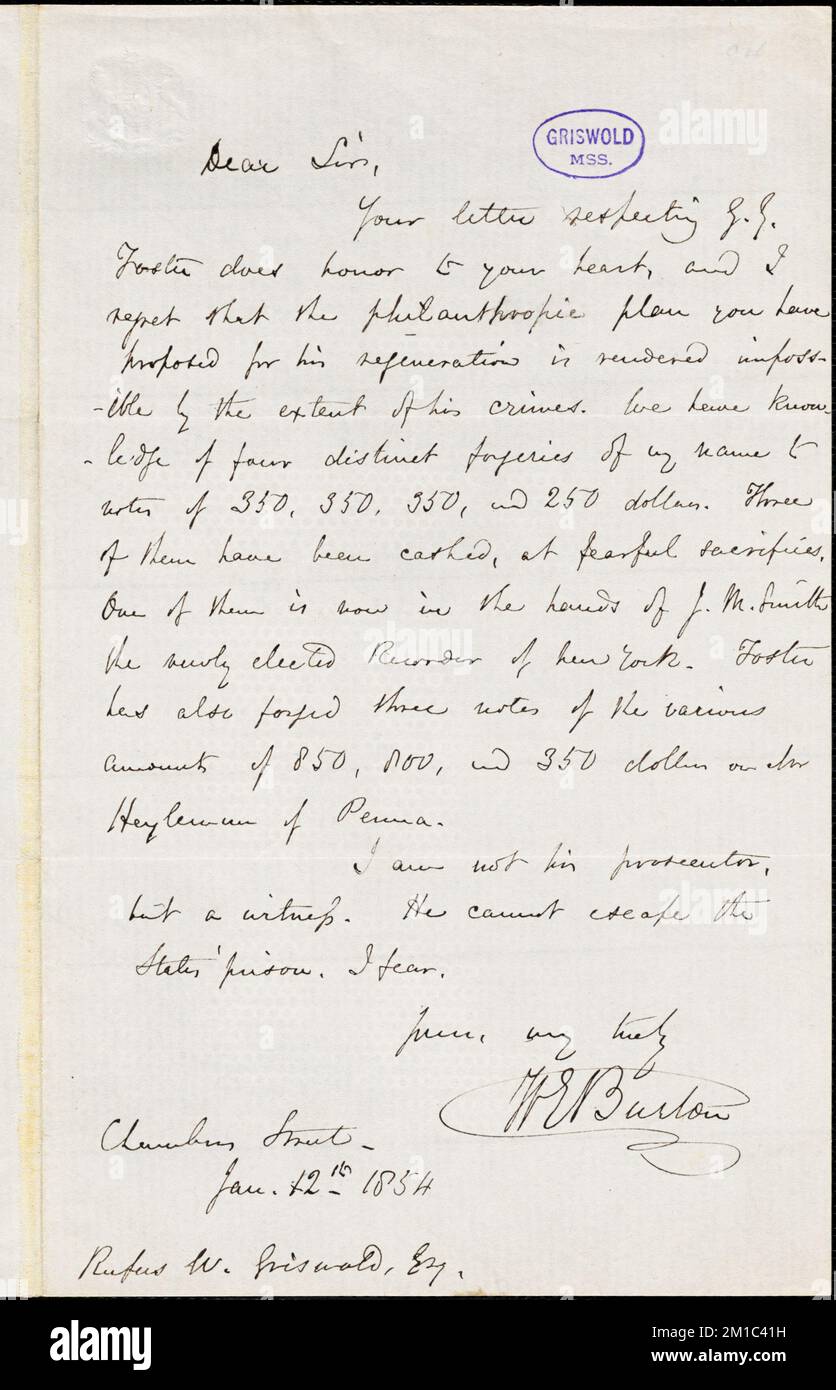 GRISWOLD
MSS.
Dear Sir,
Your letter respecting G. G.
Foster does honor to your heart, and I
regret that the philanthropic plan you have
proposed for his regeneration is rendered imposs-
-ible by the extent of his crimes. We have know-
-ledge of four distinct forgeries of my name to
notes of 350, 350, 350, and 250 dollars. Three
of them have been cashed, at fearful sacrifices.
One of them is now in the hands of J. M. Smith
the newly elected Recorder of New York. Foster
has also forged three notes of the various
amounts of 850, 800, and 350 dollars on Mr
of Penna.
I am not his prosecutor,
but a witness. He cannot escape the
States' prison. I fear.
Yours, very truly
W E Burton
Chambers Street -
Jan. 12th 1854
Rufus W. Griswold, Esq.
alamy
Image ID: 2M1C41H
www.alamy.com